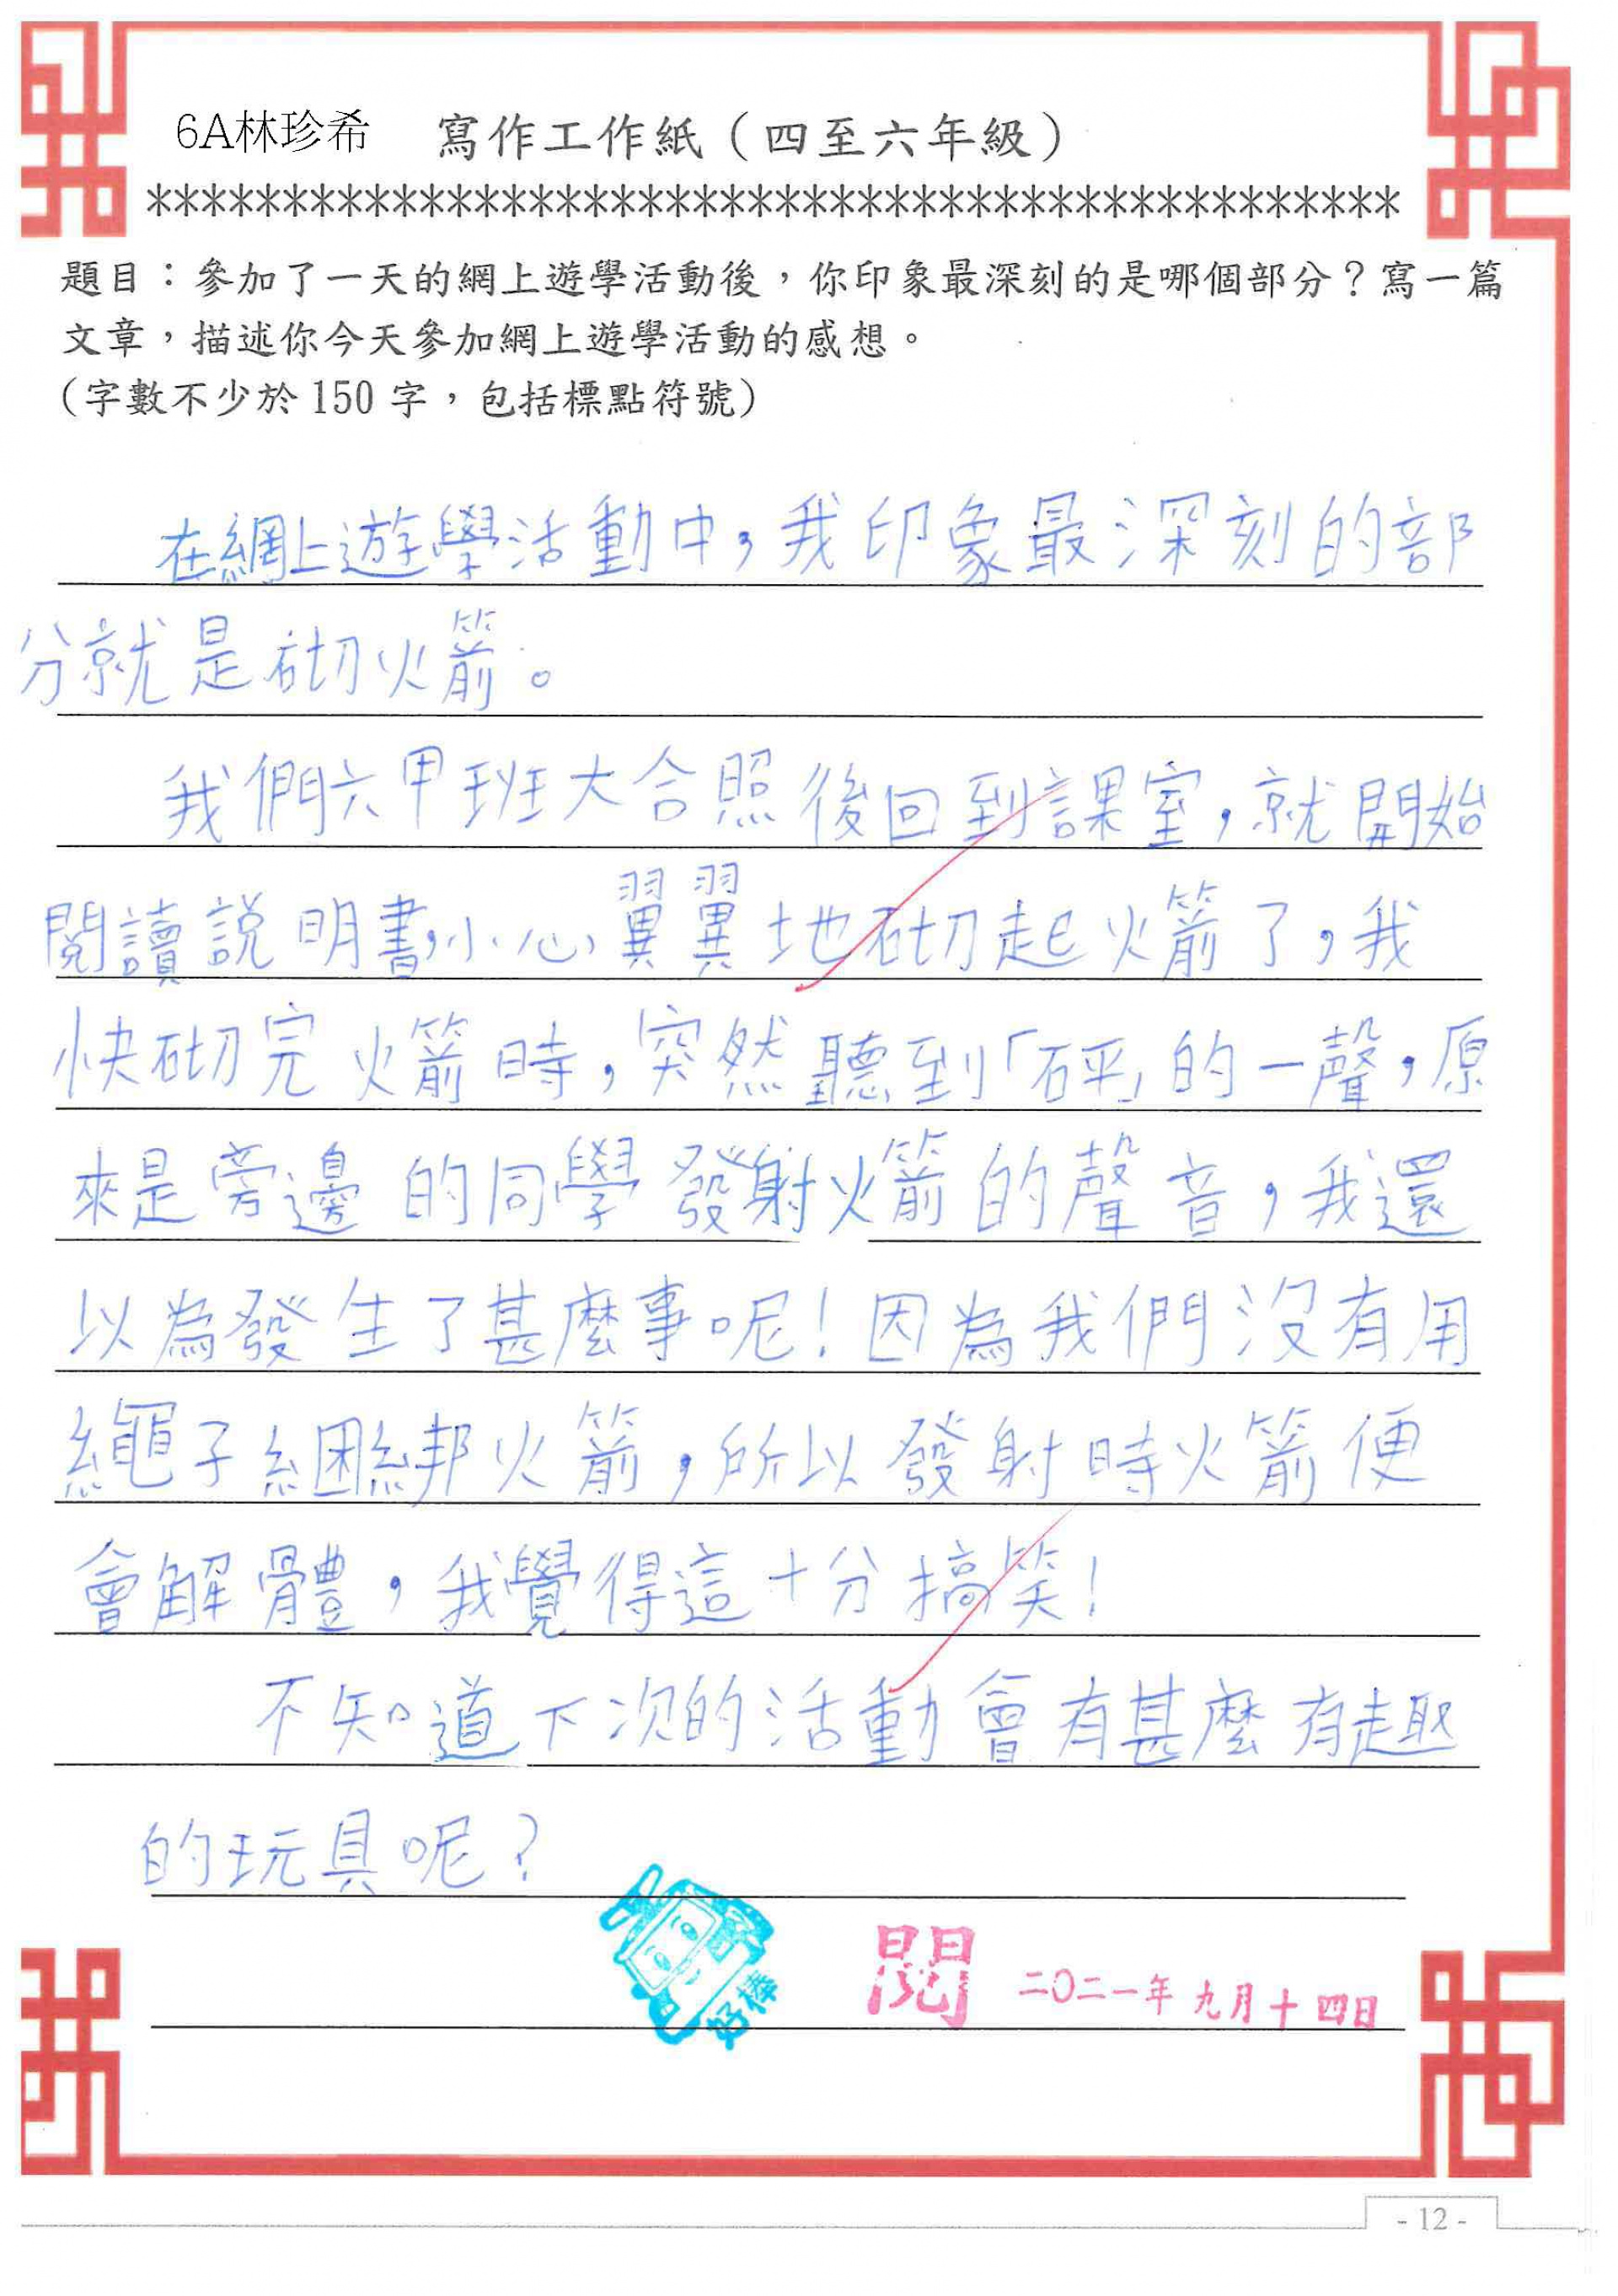 6A林珍希 寫作工作紙（四至六年級）
**********************************************
題目：參加了一天的網上遊學活動後，你印象最深刻的是哪個部分？寫一篇
文章，描述你今天參加網上遊學活動的感想。
（字數不少於150字，包括標點符號）
在網上遊學活動中，我印象最深刻的部
分就是砌火箭。
我們六甲班大合照後回到課室，就開始
閱讀説明書，小心翼翼地砌起火箭了，我
快砌完火箭時，突然聽到「砰」的一聲，原
來是旁邊的同學發射火箭的聲音，我還
以為發生了甚麼事呢！因為我們沒有用
繩子綑綁火箭，所以發射時火箭便
會解體，我覺得這十分搞笑！
不知道下次的活動會有甚麼有趣
的玩具呢？
好棒
閱 二〇二一年九月十四日
- 12 -